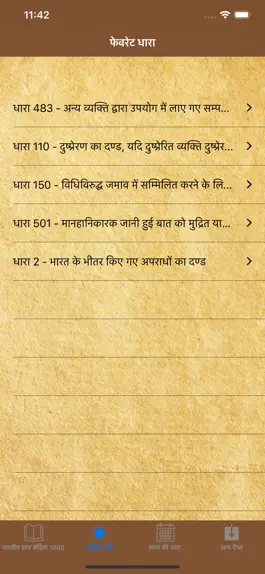 11:42
फेवरेट धारा
धारा 483 - अन्य व्यक्ति द्वारा उपयोग में लाए गए सम्प...
धारा 110 - दुष्प्रेरण का दण्ड, यदि दुष्प्रेरित व्यक्ति दुष्प्रेर...
धारा 150 - विधिविरुद्ध जमाव में सम्मिलित करने के लि...
धारा 501 - मानहानिकारक जानी हुई बात को मुद्रित या...
धारा 2 - भारत के भीतर किए गए अपराधों का दण्ड
भारतीय दण्ड संहिता 1860
आज की धारा
अन्य ऐप्स